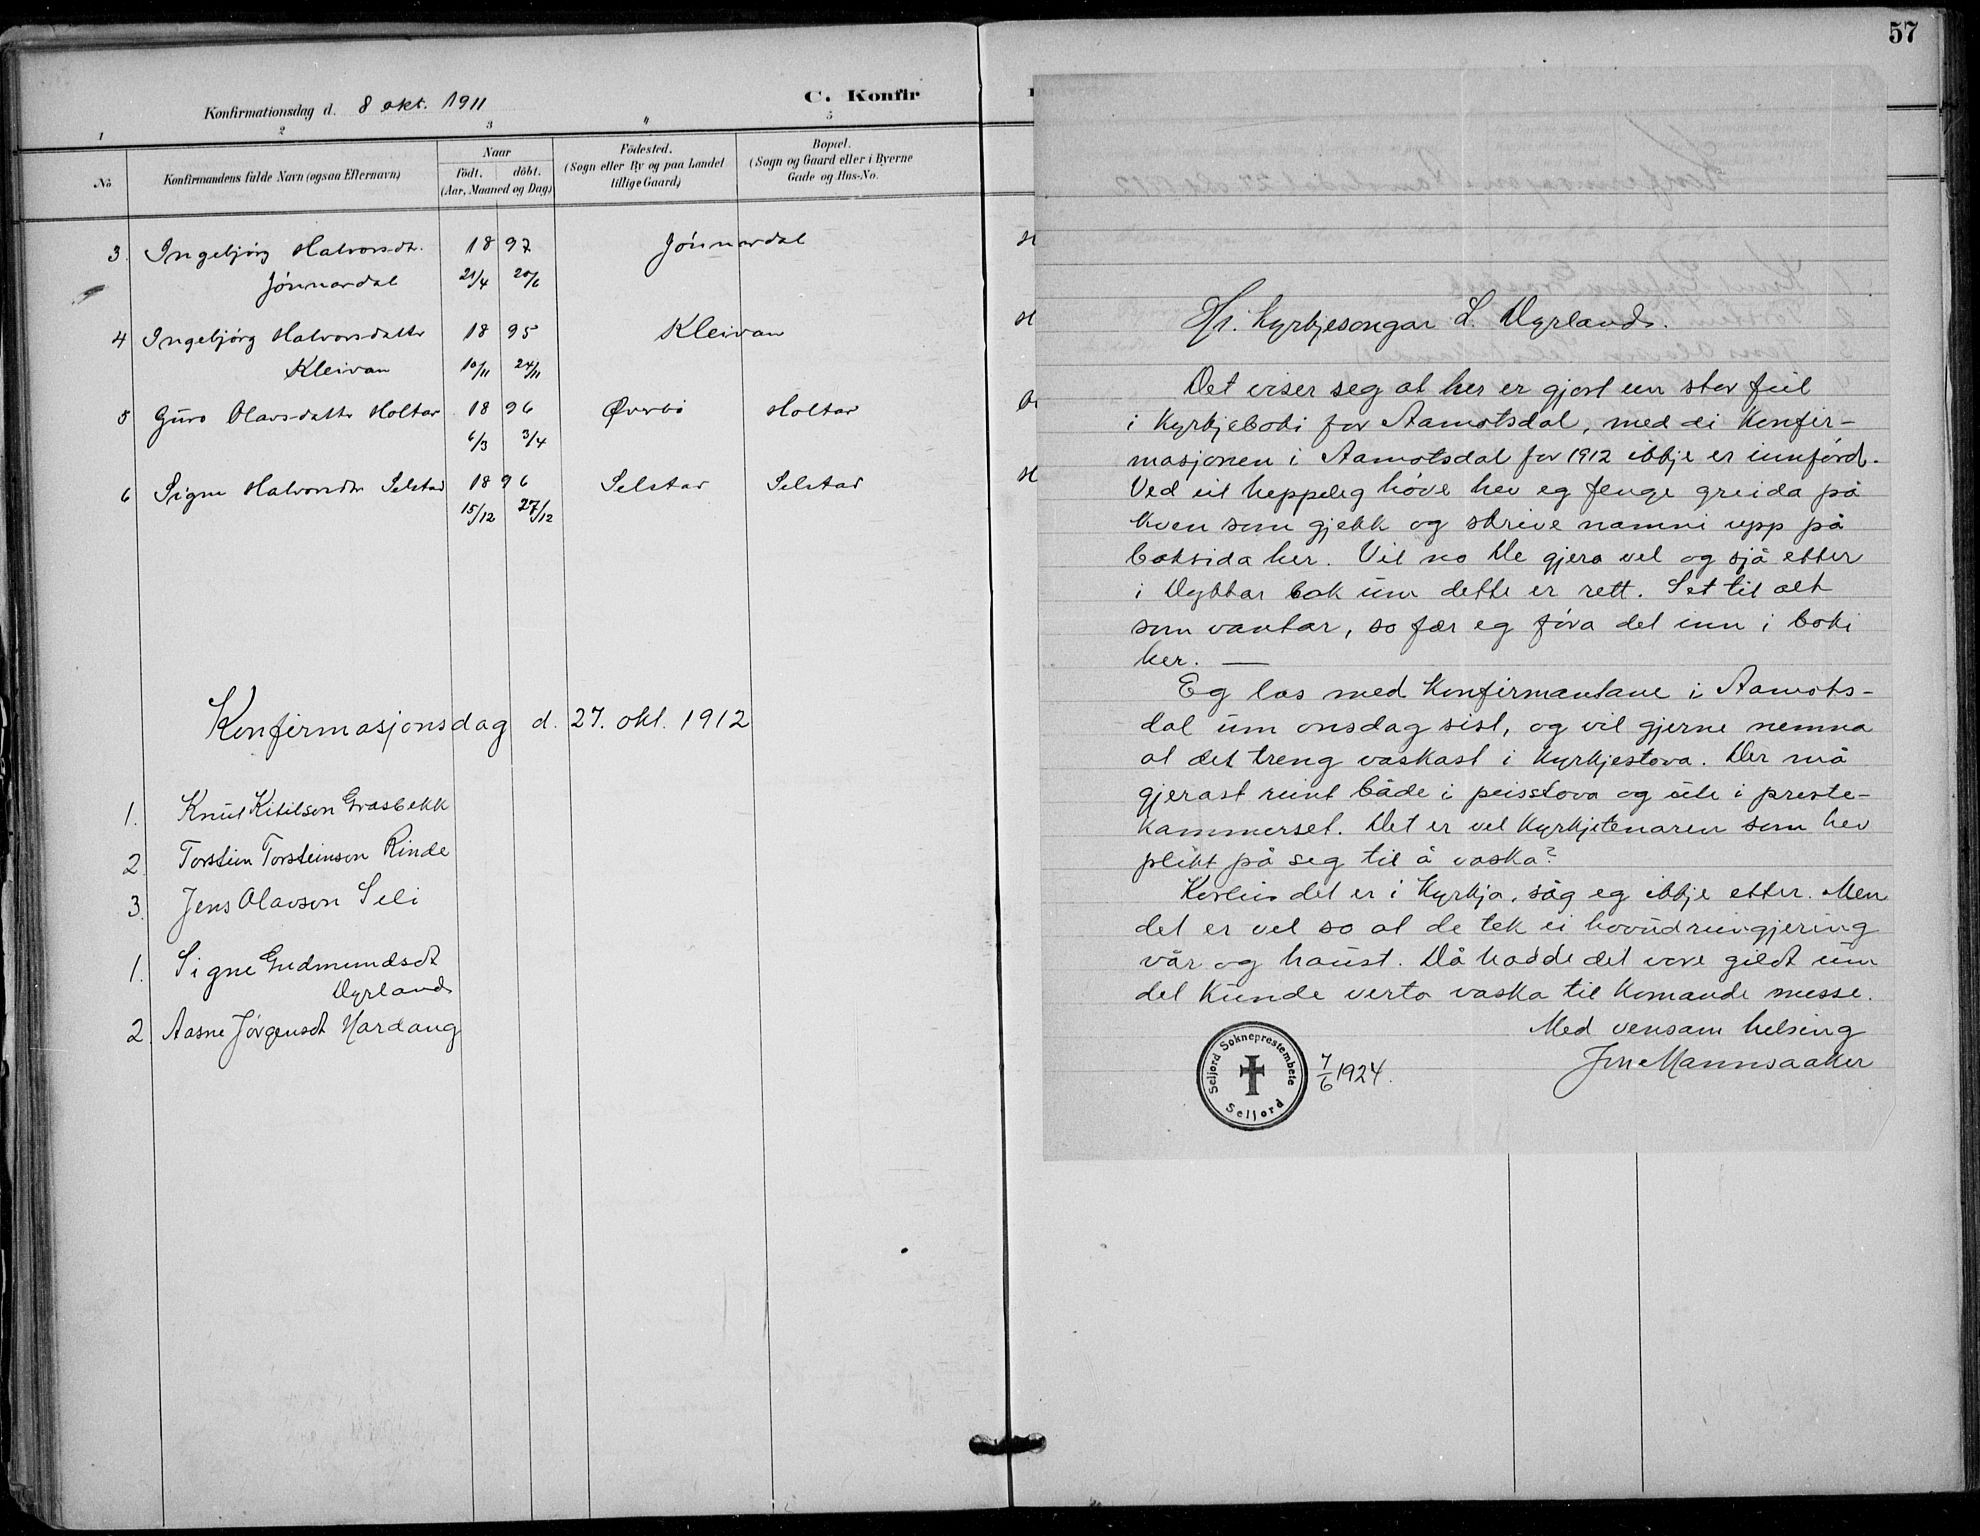 57
Konfirmationsdag d. 8 okt. 1911
C. Konfir
1 2 3 4 5
No
Konfirmandens fulde Navn (ogsaa Efternavn)
Naar
födt. döbt.
(Aar, Maaned og Dag)
Födested.
(Sogn eller By og paa Landet
tillige Gaard)
Bopæl.
(Sogn og Gaard eller i Byerne
Gade og Hus-No.
3. Ingebjörg Halvorsdtr. 1897 Jönnardal
Jönnardal 21/4 20/6
4 Ingebjörg Halvorsdatter 1895 Kleivan
Kleivan 10/11 24/11
5 Guro Olavsdatter Holtar 1896 Øverbö Holtar
6/3 3/4
6 Signe Halvorsdtr Selstad 1896 Selstad Selstad
15/12 27/12
Konfirmasjonsdag d. 27. okt. 1912
1. Knut Kitilson Grasbekk
2. Torstein Torsteinson Rinde
3. Jens Olavson Seli
1. Signe Gudmundsdt
Dyrland
2. Aasne Jörgensdt Hardang
Hr. kyrkjesongar L. Dyrland.
Det viser seg at her er gjort ein stor feil
i kyrkjeboki for Aamotsdal, med di konfir-
masjonen i Aamotsdal for 1912 ikkje er innförd.
Ved eit heppeleg höve hev eg fenge greida på
kven som gjekk og skrive namni upp på
baksida her. Vil no De gjera vel og sjå etter
i Dykkar bok um dette er rett. Set til alt
som vantar, so fær eg föra det inn i boki
her. —
Eg las med konfirmantane i Aamots-
dal um onsdag sist, og vil gjerne nemna
at det treng vaskast i kyrkjestova. Der må
gjerast reint både i peisstova og ute i preste-
kammerset. Det er vel kyrkjetenaren som hev
plikt på seg til å vaska?
Korleis det er i kyrkja, såg eg ikkje etter. Men
det er vel so at de tek ei hovudreingjering
vår og haust. Då hadde det vore gildt um
det kunde verta vaska til komande messe.
Med vensam helsing
Jon Mannsaaker
Seljord Sokneprestembete
Seljord
7/6 1924.